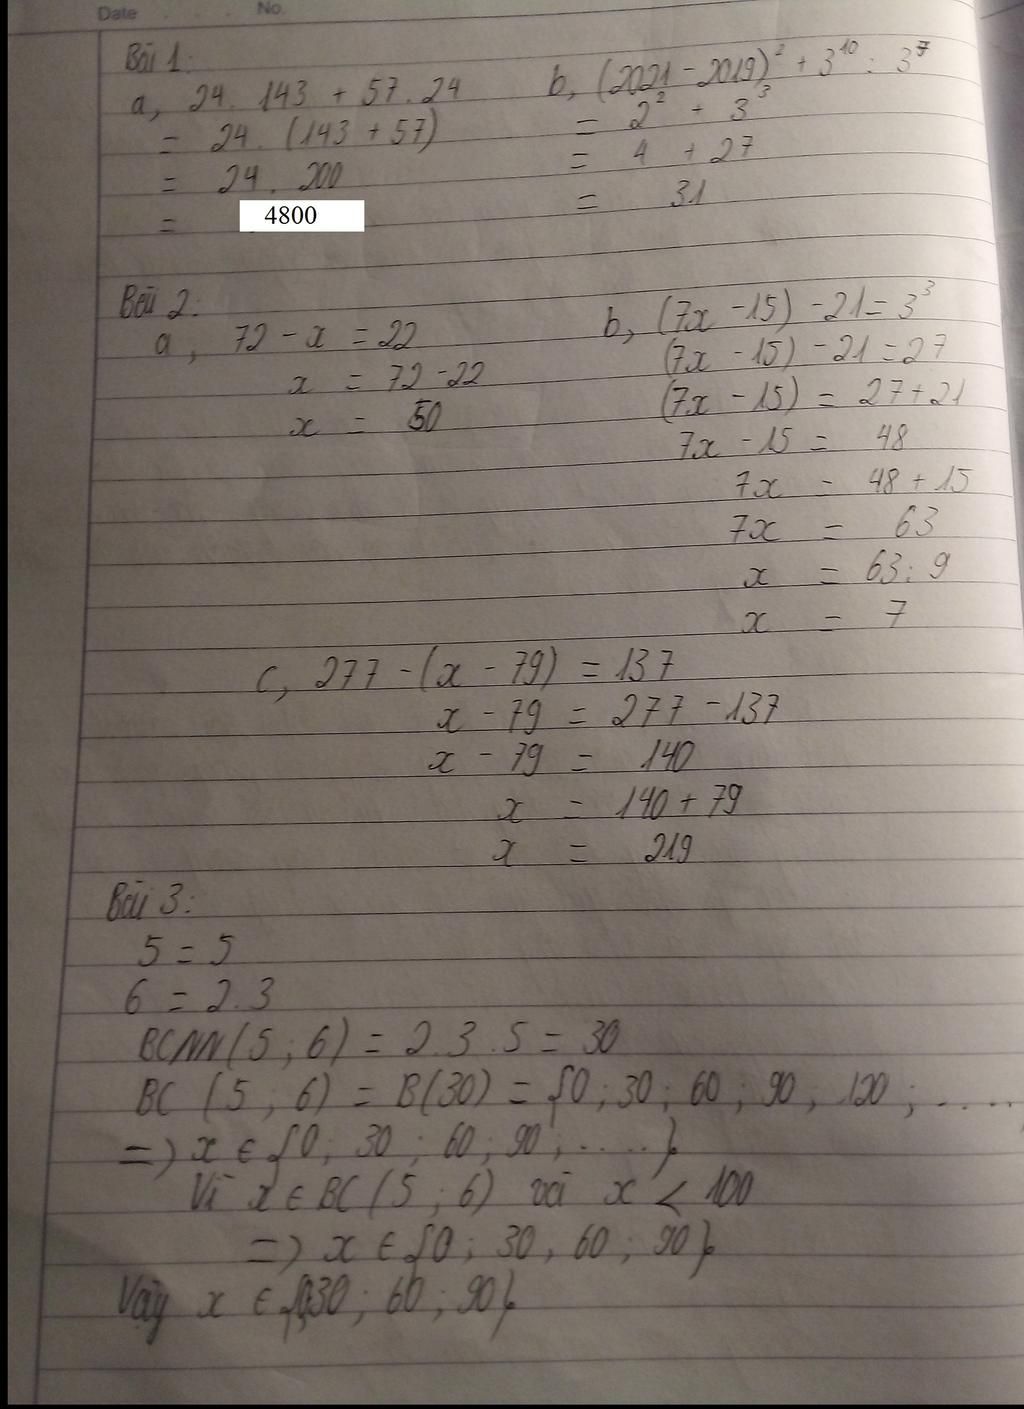 Date No.
Bài 1:
a, 24. 143 + 57.24
= 24. (143 + 57)
= 24. 200
= 4800
b, (2021 - 2019)² + 3¹⁰ : 3⁷
= 2² + 3³
= 4 + 27
= 31
Bài 2:
a, 72 - x = 22
x = 72 - 22
x = 50
b, (7x - 15) - 21 = 3³
(7x - 15) - 21 = 27
(7x - 15) = 27 + 21
7x - 15 = 48
7x = 48 + 15
7x = 63
x = 63 : 9
x = 7
c, 277 - (x - 79) = 137
x - 79 = 277 - 137
x - 79 = 140
x = 140 + 79
x = 219
Bài 3:
5 = 5
6 = 2.3
BCNN(5 ; 6) = 2.3.5 = 30
BC (5 ; 6) = B(30) = {0 ; 30 ; 60 ; 90 ; 120 ; ....
=> x ∈ {0 ; 30 ; 60 ; 90 ; .....}
Vì x ∈ BC (5 ; 6) và x < 100
=> x ∈ {0 ; 30 , 60 ; 90}
Vậy x ∈ {0;30 ; 60 ; 90}